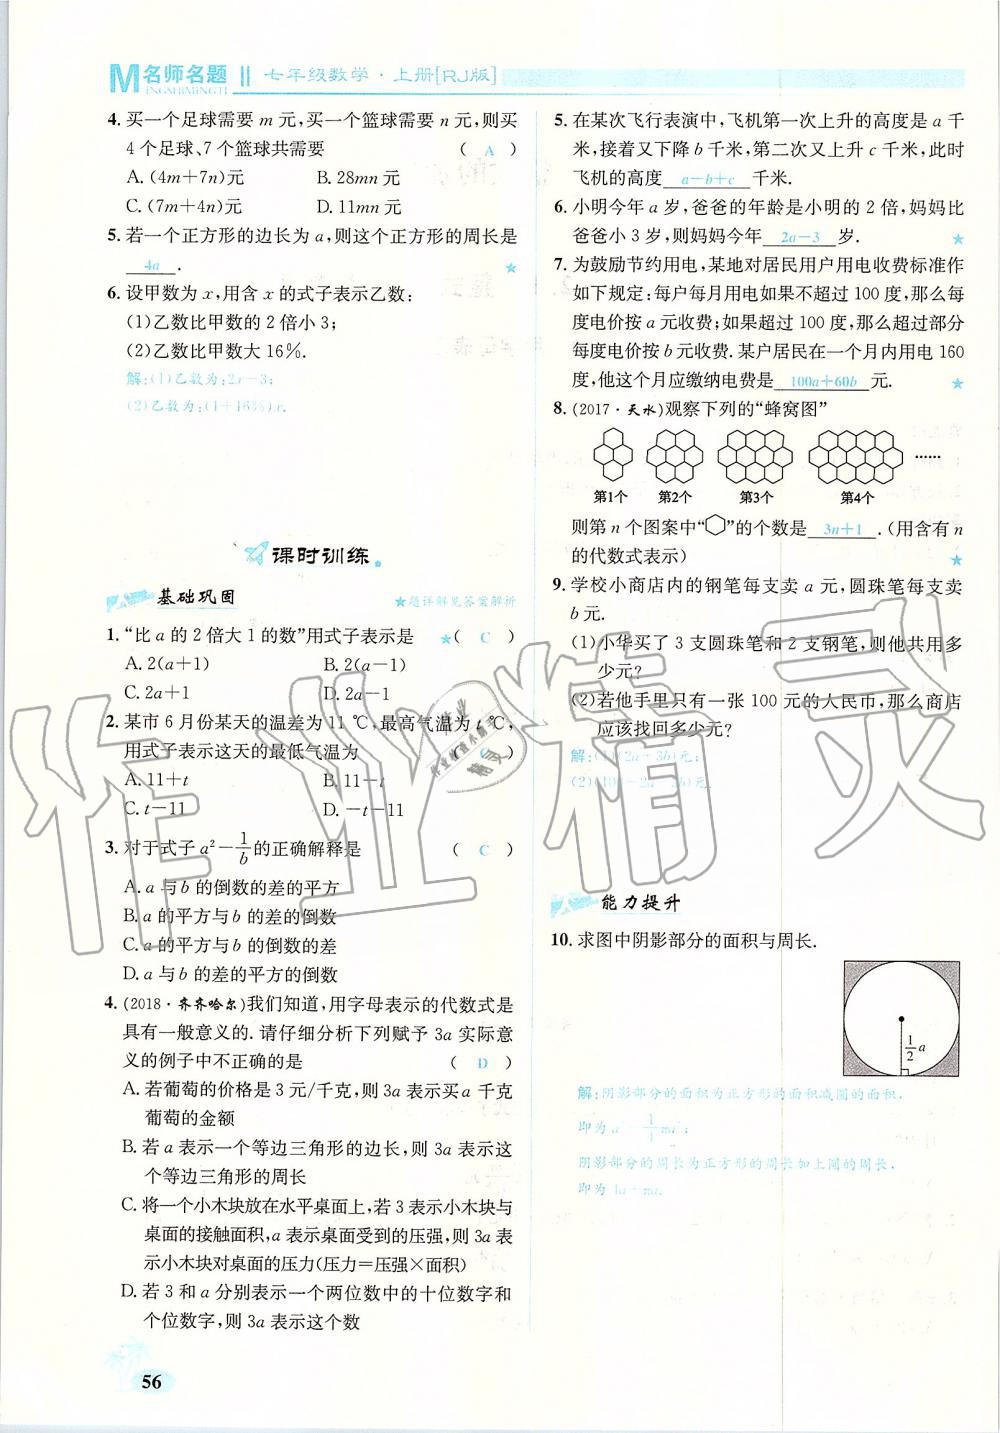 M 名师名题 七年级数学·上册[RJ版]
MINGSHIMINGTI
4. 买一个足球需要 m 元,买一个篮球需要 n 元,则买
4 个足球、7 个篮球共需要 ( A )
A. (4m+7n)元 B. 28mn 元
C. (7m+4n)元 D. 11mn 元
5. 若一个正方形的边长为 a,则这个正方形的周长是
4a . ★
6. 设甲数为 x,用含 x 的式子表示乙数:
(1)乙数比甲数的 2 倍小 3;
(2)乙数比甲数大 16%.
解:(1)乙数为:2x-3;
(2)乙数为:(1+16%)x.
课时训练
基础巩固 ★题详解见答案解析
1. “比 a 的 2 倍大 1 的数”用式子表示是 ★( C )
A. 2(a+1) B. 2(a-1)
C. 2a+1 D. 2a-1
2. 某市 6 月份某天的温差为 11 ℃,最高气温为 t ℃,
用式子表示这天的最低气温为 ( C )
A. 11+t B. 11-t
C. t-11 D. -t-11
3. 对于式子 a²-1/b 的正确解释是 ( C )
A. a 与 b 的倒数的差的平方
B. a 的平方与 b 的差的倒数
C. a 的平方与 b 的倒数的差
D. a 与 b 的差的平方的倒数
4. (2018·齐齐哈尔)我们知道,用字母表示的代数式是
具有一般意义的. 请仔细分析下列赋予 3a 实际意
义的例子中不正确的是 ( D )
A. 若葡萄的价格是 3 元/千克,则 3a 表示买 a 千克
葡萄的金额
B. 若 a 表示一个等边三角形的边长,则 3a 表示这
个等边三角形的周长
C. 将一个小木块放在水平桌面上,若 3 表示小木块与
桌面的接触面积,a 表示桌面受到的压强,则 3a 表
示小木块对桌面的压力(压力=压强×面积)
D. 若 3 和 a 分别表示一个两位数中的十位数字和
个位数字,则 3a 表示这个数
5. 在某次飞行表演中,飞机第一次上升的高度是 a 千
米,接着又下降 b 千米,第二次又上升 c 千米,此时
飞机的高度 a-b+c 千米.
6. 小明今年 a 岁,爸爸的年龄是小明的 2 倍,妈妈比
爸爸小 3 岁,则妈妈今年 2a-3 岁. ★
7. 为鼓励节约用电,某地对居民用户用电收费标准作
如下规定:每户每月用电如果不超过 100 度,那么每
度电价按 a 元收费;如果超过 100 度,那么超过部分
每度电价按 b 元收费. 某户居民在一个月内用电 160
度,他这个月应缴纳电费是 100a+60b 元. ★
8. (2017·天水)观察下列的“蜂窝图”
……
第1个 第2个 第3个 第4个
则第 n 个图案中“⬡”的个数是 3n+1 .(用含有 n
的代数式表示) ★
9. 学校小商店内的钢笔每支卖 a 元,圆珠笔每支卖
b 元.
(1)小华买了 3 支圆珠笔和 2 支钢笔,则他共用多
少元?
(2)若他手里只有一张 100 元的人民币,那么商店
应该找回多少元?
解:(1)(2a+3b)元;
(2)(100-2a-3b)元.
能力提升
10. 求图中阴影部分的面积与周长.
1/2 a
解:阴影部分的面积为正方形的面积减圆的面积,
即为 a²-1/4 πa²;
阴影部分的周长为正方形的周长加上圆的周长,
即为 4a+πa.
56
作业精灵
作业检查小帮手
精灵